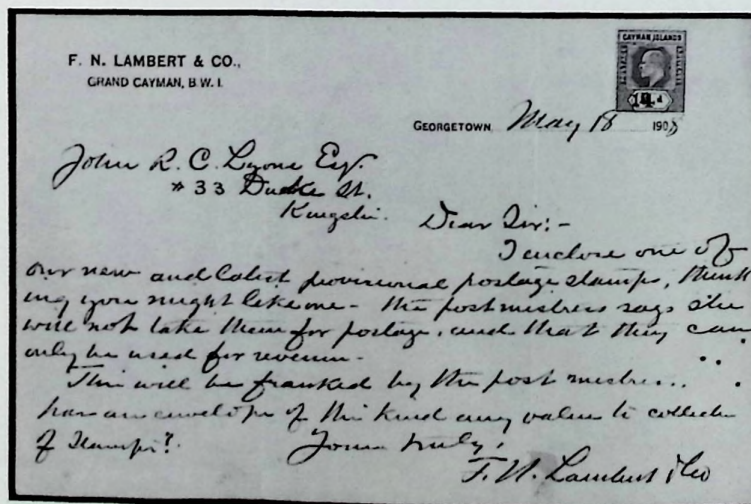 F. N. LAMBERT & CO.,
GRAND CAYMAN, B.W.I.
CAYMAN ISLANDS
GEORGETOWN May 18 1908
John R. C. Lyons Esq
# 33 Duke St.
Kingston.
Dear Sir:-
I enclose one of
our new and latest provisional postage stamps, think
ing you might like one - the postmistress says she
will not take them for postage, and that they can
only be used for revenue -
This will be franked by the post mistress..
has an envelope of this kind any value to collectors
of Stamps?
Yours truly,
F. N. Lambert & Co